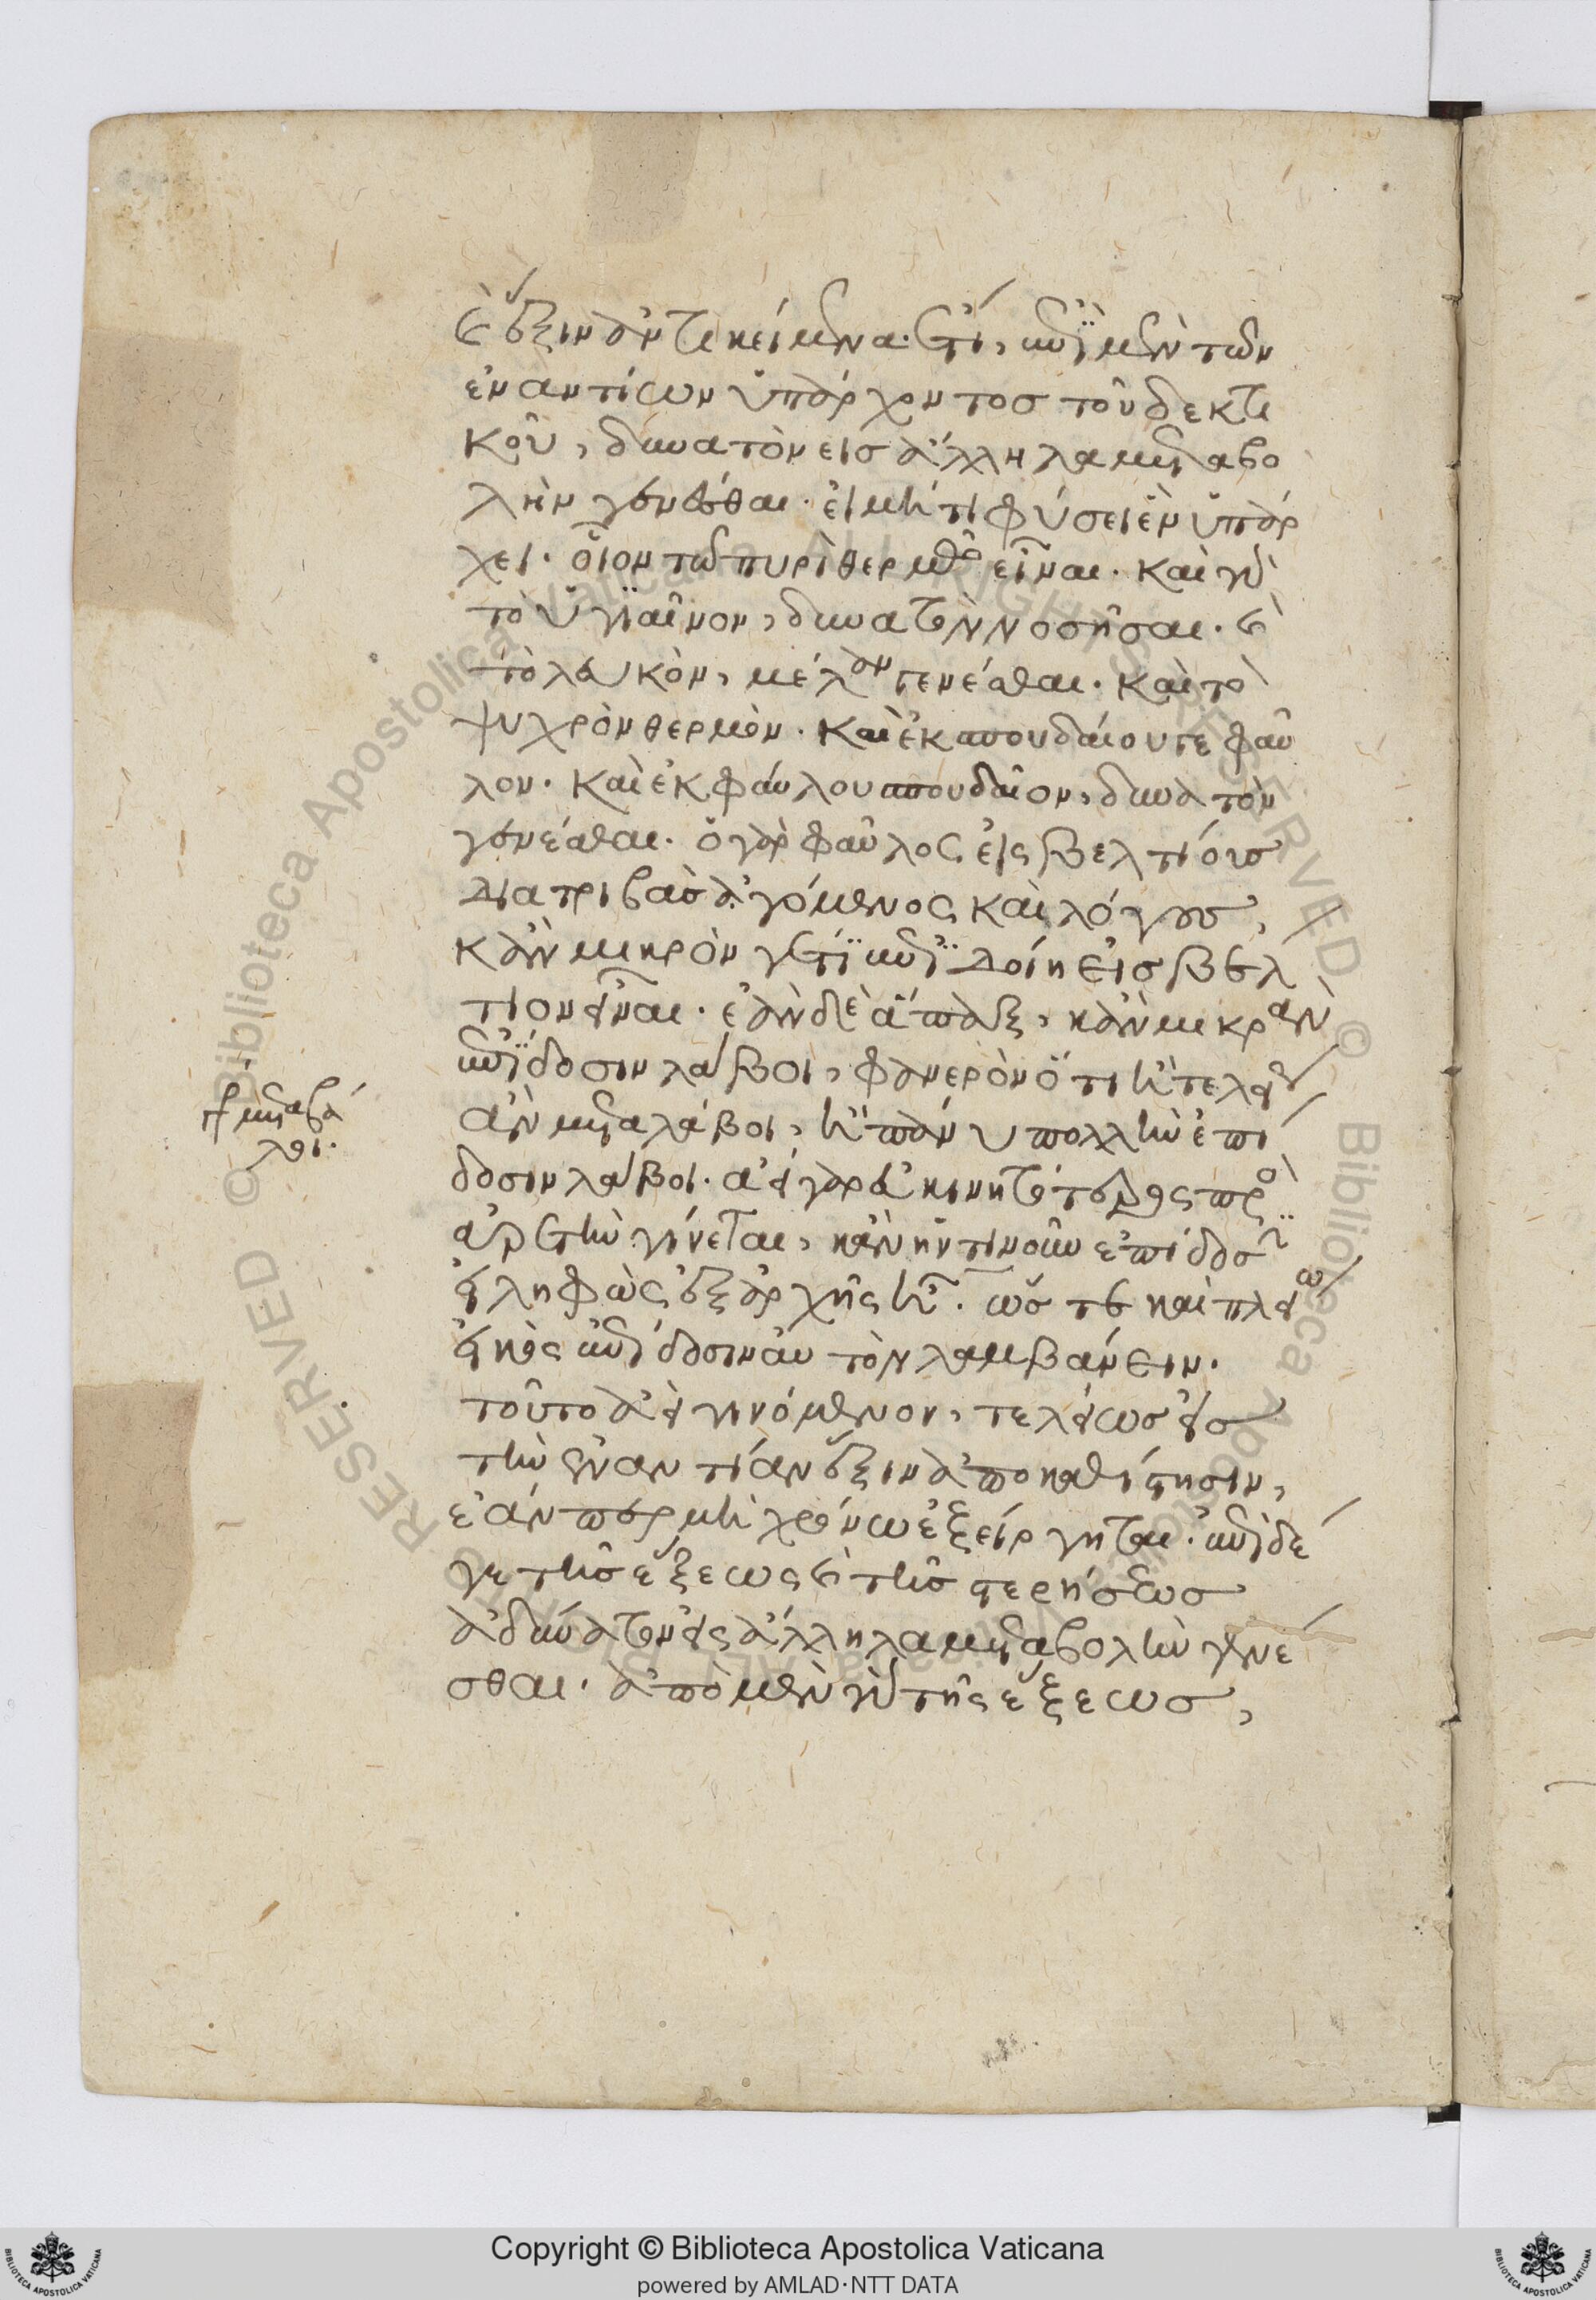 καὶ ἕξιν ἀντικείμενα. ἔτι, ἐπὶ μὲν τῶν
ἐναντίων ὑπάρχοντος τοῦ δεκτι
κοῦ, δυνατὸν εἰς ἄλληλα μεταβο
λὴν γενέσθαι. εἰ μή τι φύσει ἓν ὑπάρ
χει. οἷον τῶ πυρὶ θερμῶ εἶναι. καὶ γὰρ
τὸ ὑγιαῖνον, δυνατὸν νοσῆσαι. καὶ
τὸ λευκὸν, μέλαν γενέσθαι. καὶ τὸ
ψυχρὸν θερμόν. καὶ ἐκ σπουδαίου γε φαῦ
λον. καὶ ἐκ φαύλου σπουδαῖον, δυνατὸν
γενέσθαι. ὁ γὰρ φαῦλος εἰς βελτίους
διατριβὰς ἀγόμενος καὶ λόγους,
κἂν μικρὸν γέ τι ἐπιδοίη εἰς βελ
τίον εἶναι. ἐὰν δὲ ἅπαξ, κἂν μικρὰν
ἐπίδοσιν λάβοι, φανερὸν ὅτι ἢ τελείως
ἂν μεταλάβοι, ἢ πάνυ πολλὴν ἐπί
δοσιν λάβοι. ἀεὶ γὰρ εὐκινητότερος πρὸς
ἀρετὴν γίνεται, κἂν ἡντινοῦν ἐπίδοσιν
εἰληφὼς ἐξ ἀρχῆς ἦ. ὥστε καὶ πλείω
εἰκὸς ἐπίδοσιν αὐτὸν λαμβάνειν.
τοῦτο ἀεὶ γινόμενον, τελείως εἰς
τὴν ἐναντίαν ἕξιν ἀποκαθίστησιν,
ἐάνπερ μὴ χρόνω ἐξείργηται. ἐπὶ δέ
γε τῆς ἕξεως καὶ τῆς στερήσεως
ἀδύνατον εἰς ἄλληλα μεταβολὴν γενέ
σθαι. ἀπὸ μὲν γὰρ τῆς ἕξεως,
γρ μεταβά
λοι.